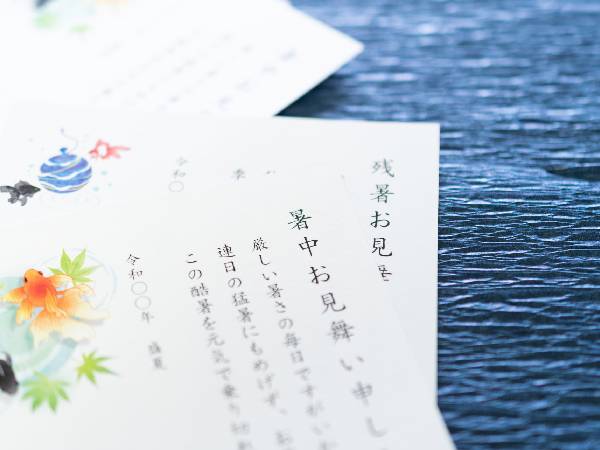 残暑お見
暑中お見舞い申し
厳しい暑さの毎日ですがいか
連日の猛暑にもめげず、お
この酷暑を元気で乗り切れ
令和〇〇年 盛夏
令和〇